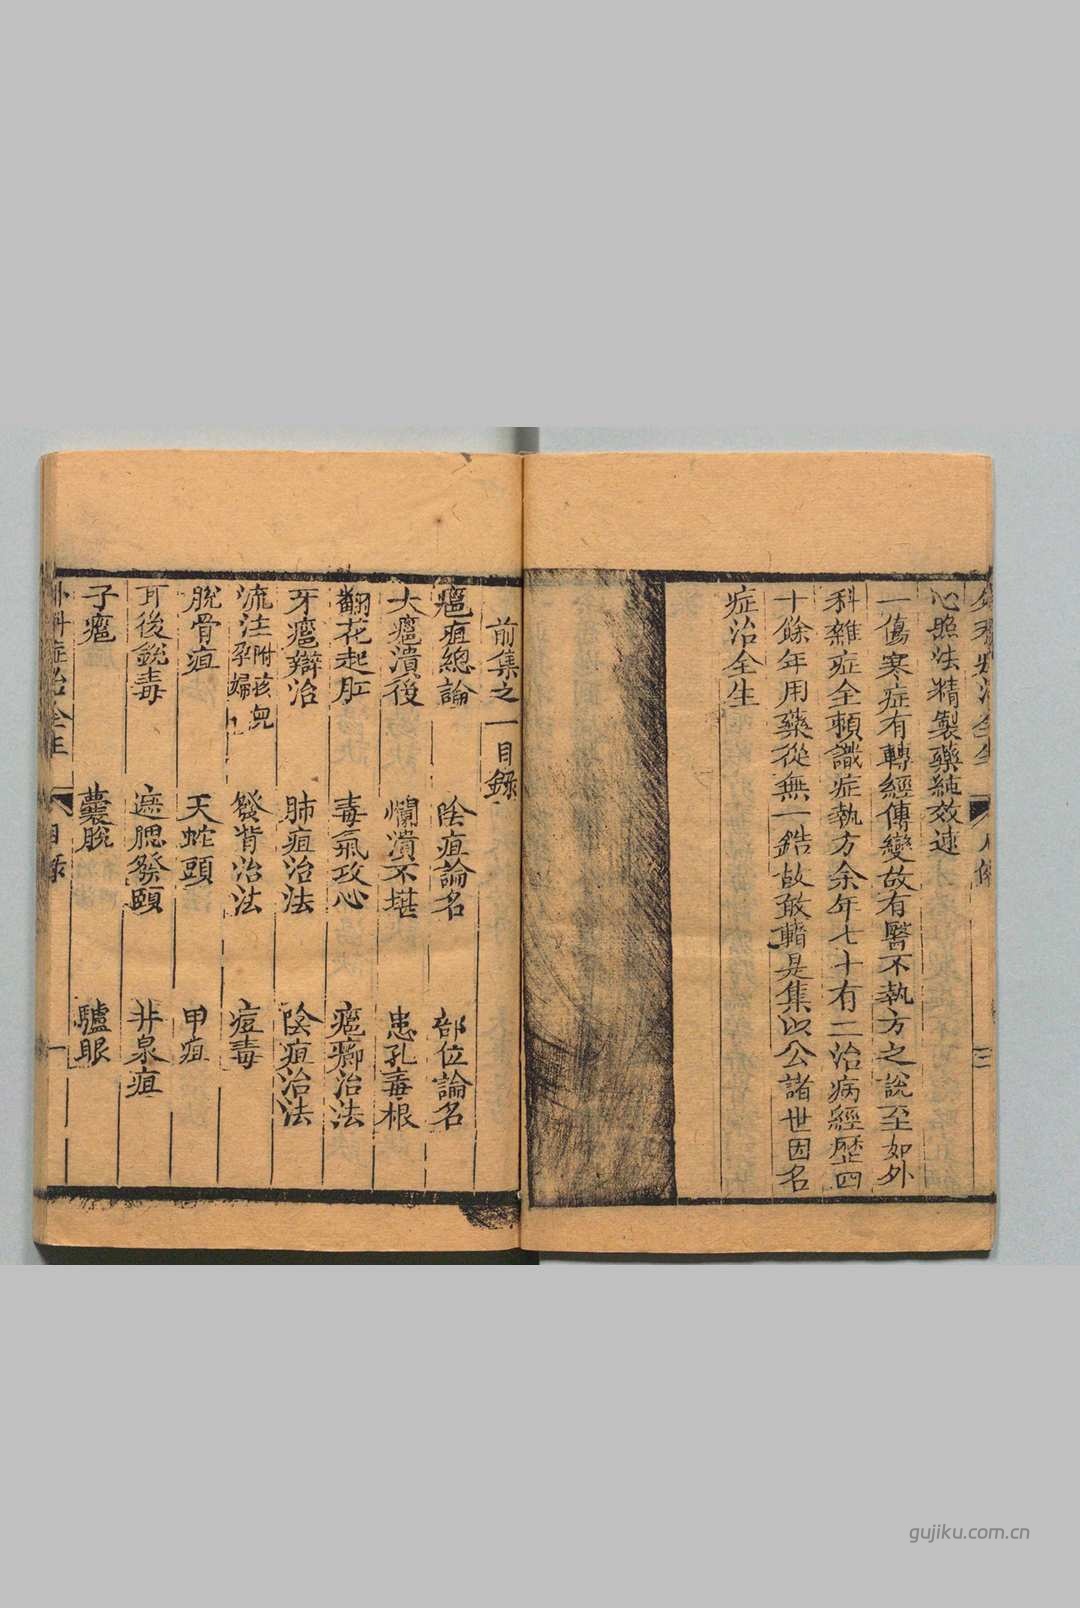 心照法精製藥純效速
一傷寒症有轉經傳變故有醫不執方之說至如外
科雜症全賴識症執方余年七十有二治病經歷四
十餘年用藥從無一錯故敢輯是集以公諸世因名
症治全生
三
前集之一目錄
癰疽總論 陰疽論名 部位論名
大癰潰後 爛潰不堪 患孔毒根
翻花起肛 毒氣攻心 癰癤治法
牙癰辯治 肺疽治法 陰疽治法
流注附孩兒孕婦 發背治法 痘毒
脫骨疽 天蛇頭 甲疽
耳後銳毒 遮腮發頤 井泉疽
子癰 囊脫 驢眼
外科症治全生 目錄 一
gujiku.com.cn